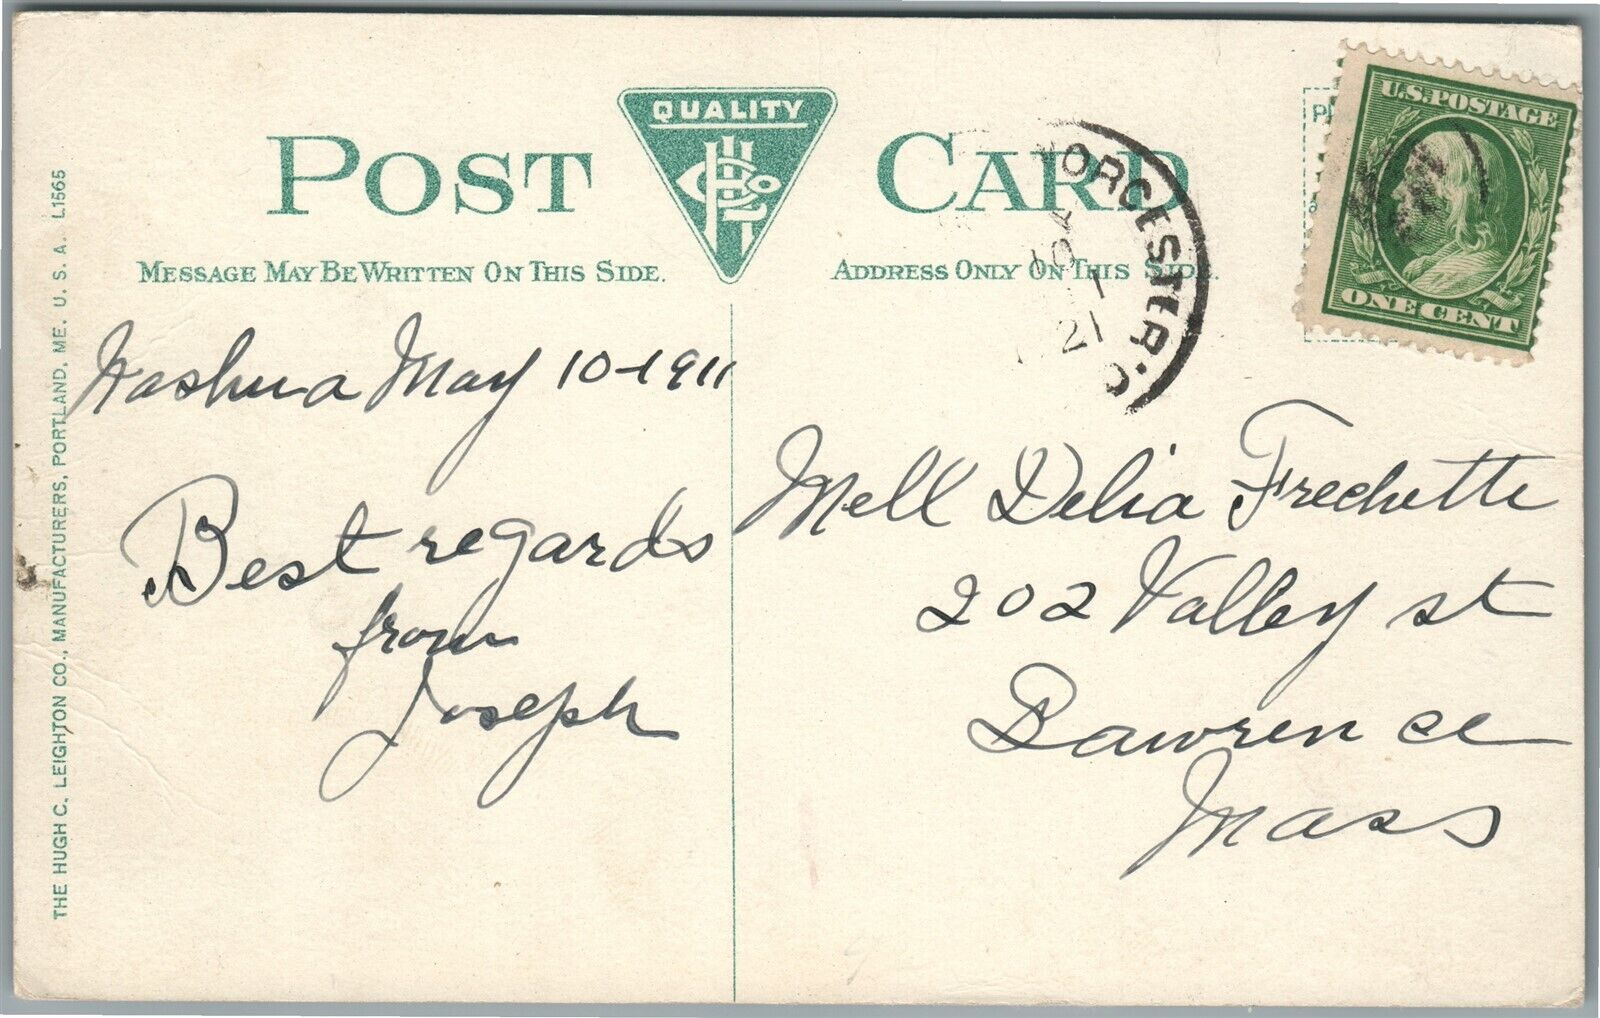 QUALITY
POST CARD
MESSAGE MAY BE WRITTEN ON THIS SIDE.
ADDRESS ONLY ON THIS SIDE.
U.S. POSTAGE
ONE CENT
ORCESTER
10
21
Nashua May 10-1911
Best regards
from
Joseph
Mell Delia Frechette
202 Valley st
Lawrence
Mass
THE HUGH C. LEIGHTON CO., MANUFACTURERS, PORTLAND, ME. U. S. A. L1565